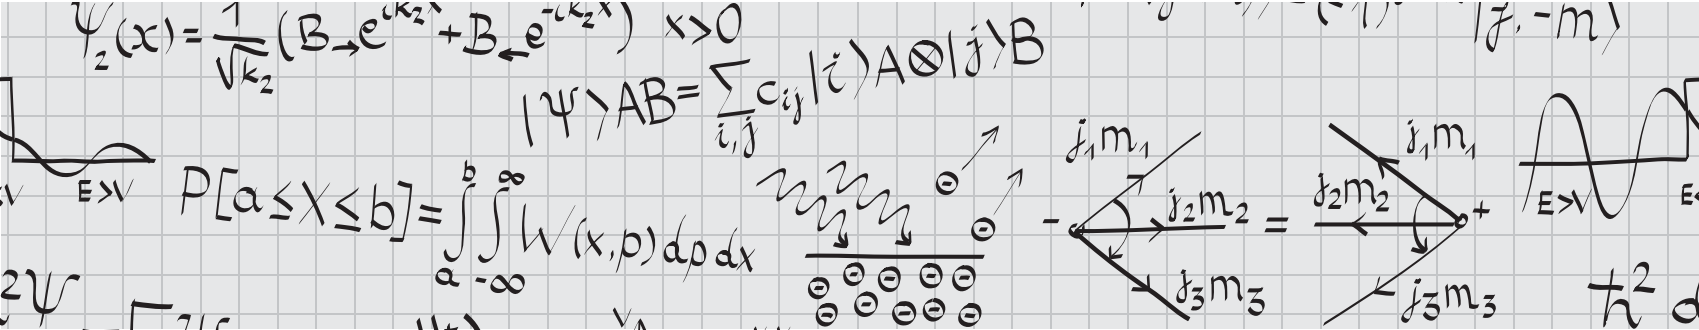 Ψ₂(x) = 1/√k₂ (B→e^{ik₂x} + B←e^{-ik₂x}) x>0
|j,-m⟩
|Ψ⟩AB = ∑_{i,j} c_{ij} |i⟩A⊗|j⟩B
E>V
P[a≤X≤b] = ∫_a^b ∫_{-∞}^{∞} W(x,p) dp dx
⊖ ⊖
⊖ ⊖ ⊖ ⊖ ⊖
⊖ ⊖ ⊖ ⊖ ⊖
j₁m₁
- j₂m₂ =
j₃m₃
j₁m₁
j₂m₂ +
j₃m₃
E>V
²Ψ
ħ²